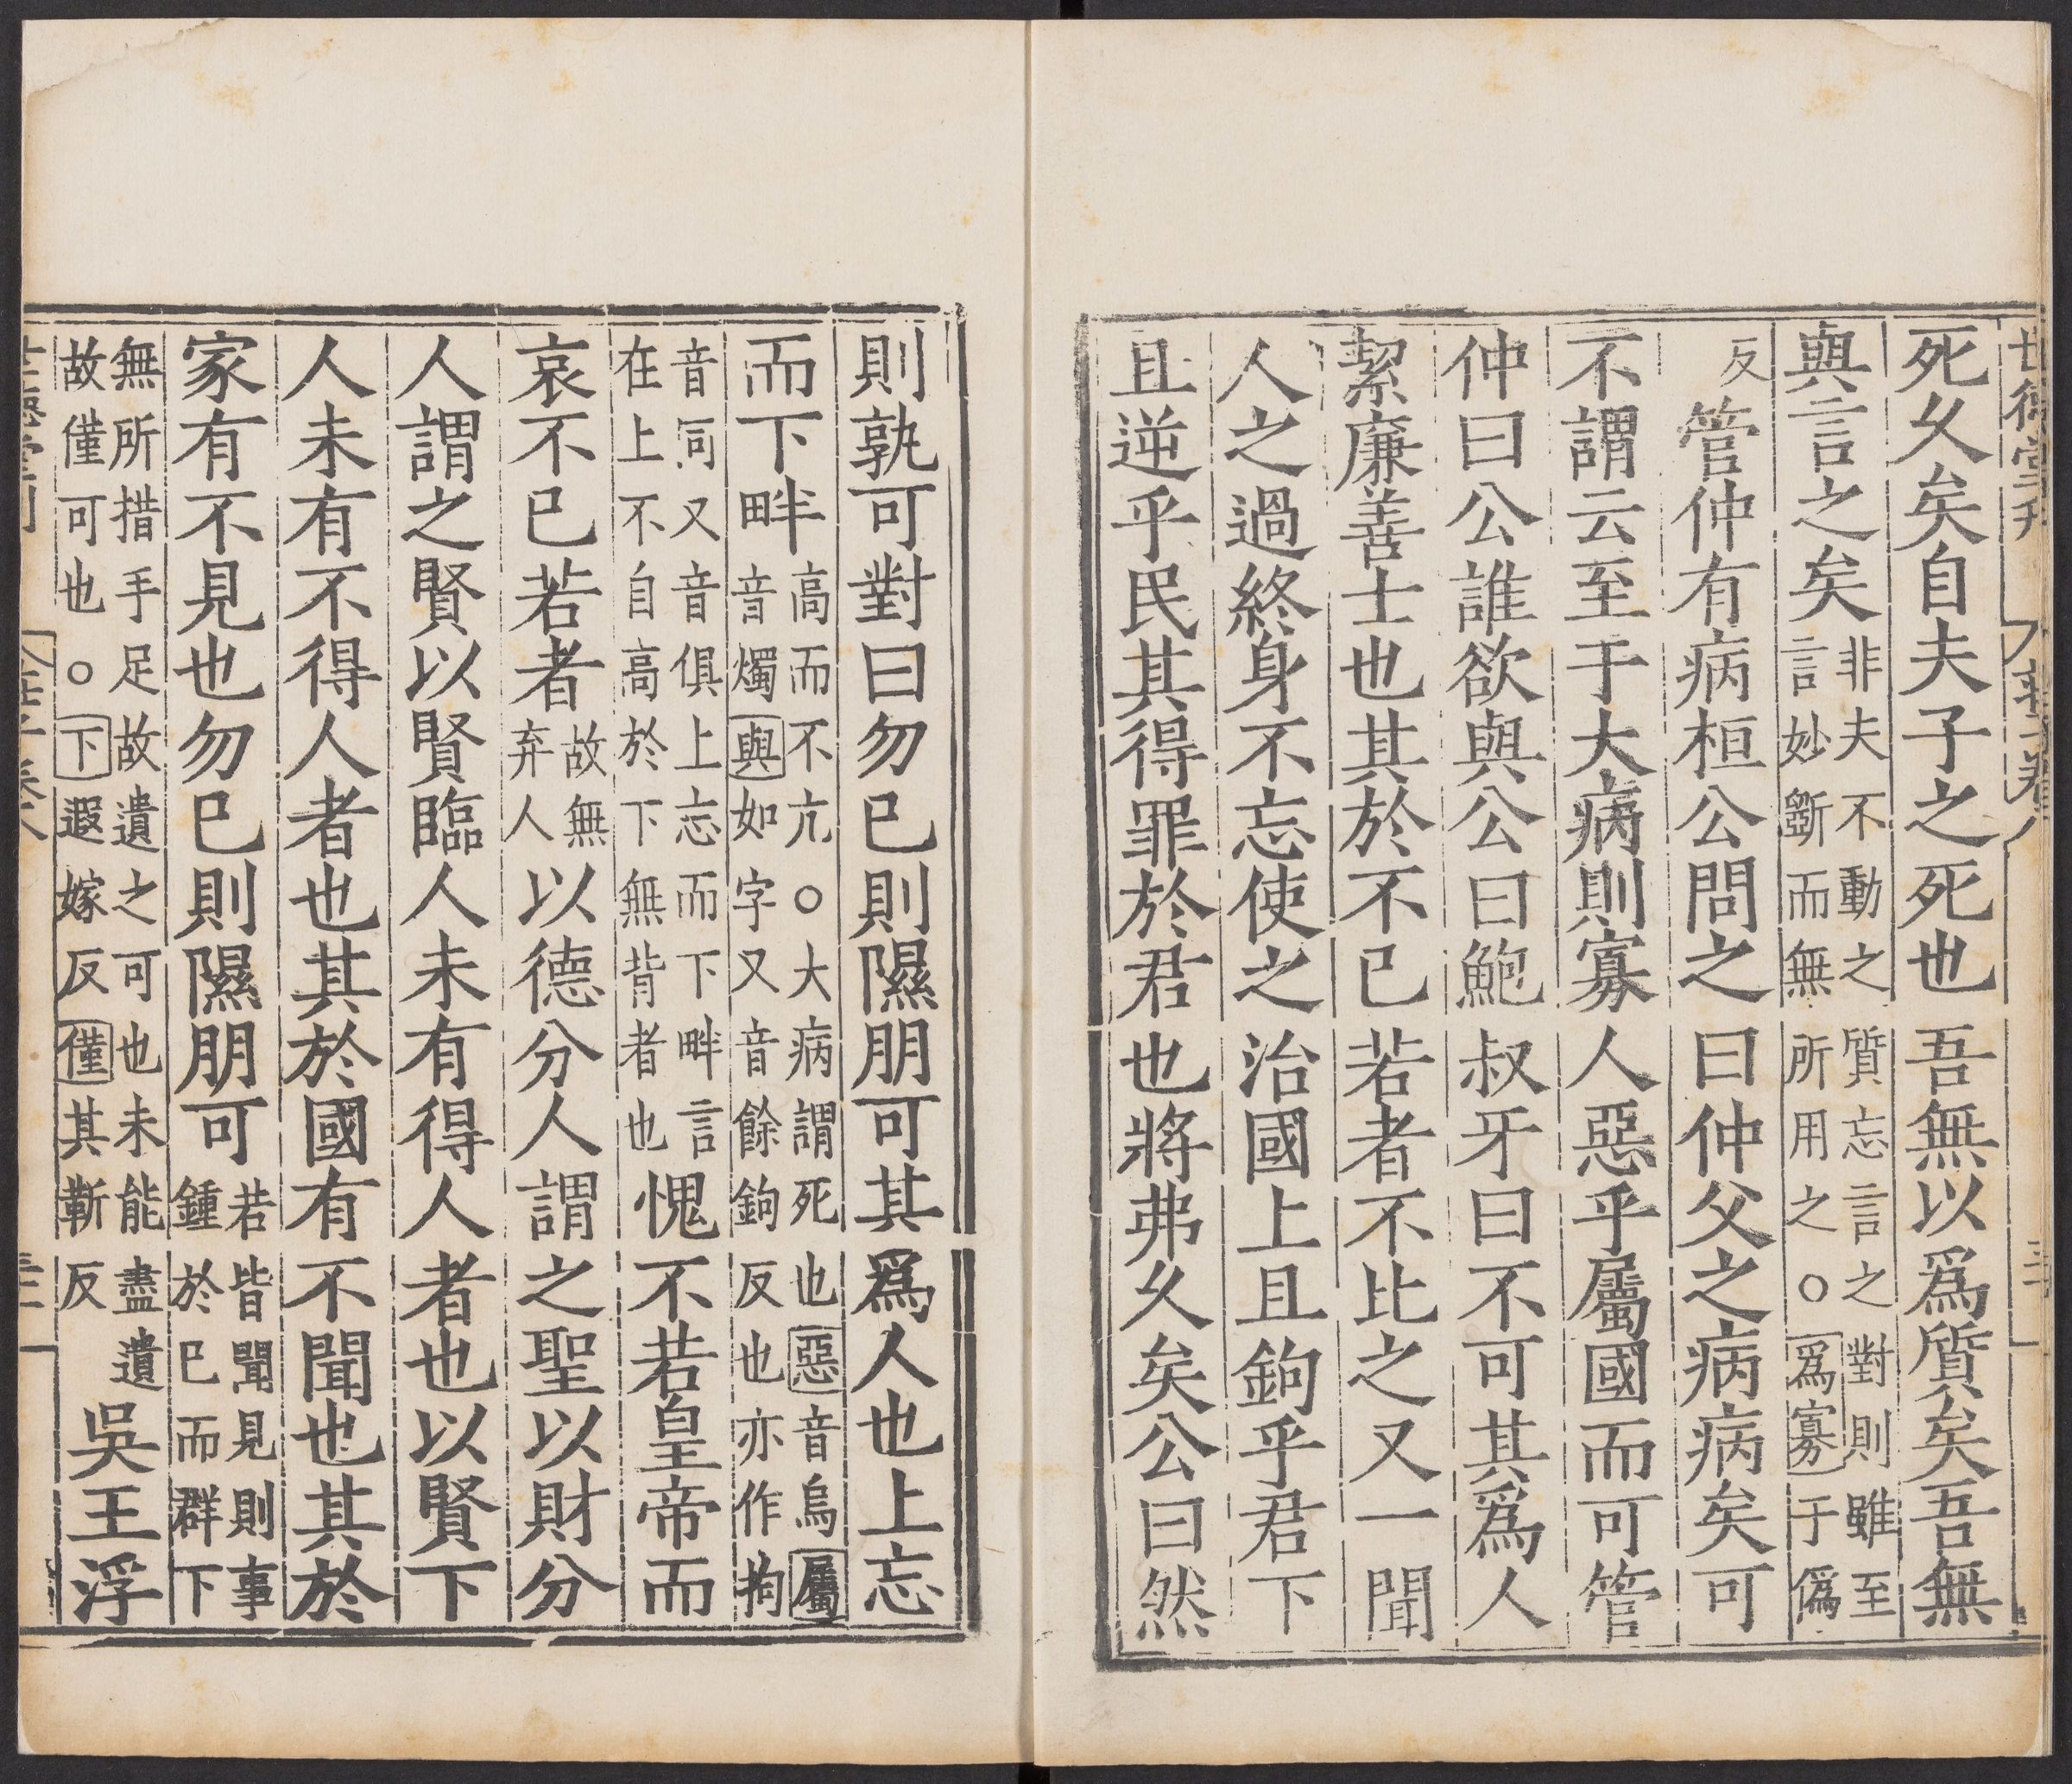 世德堂刊 莊子卷八
死乆矣自夫子之死也吾無以爲質矣吾無
與言之矣非夫不動之質忘言之對則雖至
言妙斲而無所用之○爲寡于僞
反管仲有病桓公問之曰仲父之病病矣可
不謂云至于大病則寡人惡乎屬國而可管
仲曰公誰欲與公曰鮑叔牙曰不可其爲人
絜廉善士也其於不已若者不比之又一聞
人之過終身不忘使之治國上且鉤乎君下
且逆乎民其得罪於君也將弗乆矣公曰然
則孰可對曰勿已則隰朋可其爲人也上忘
而下畔高而不亢○大病謂死也惡音烏屬
音燭與如字又音餘鉤反也亦作拘
音同又音俱上忘而下畔言
在上不自高於下無背者也愧不若皇帝而
哀不已若者故無
弃人以德分人謂之聖以財分
人謂之賢以賢臨人未有得人者也以賢下
人未有不得人者也其於國有不聞也其於
家有不見也勿已則隰朋可若皆聞見則事
鍾於巳而群下
無所措手足故遺之可也未能盡遺
故僅可也○下遐嫁反僅其靳反吳王浮